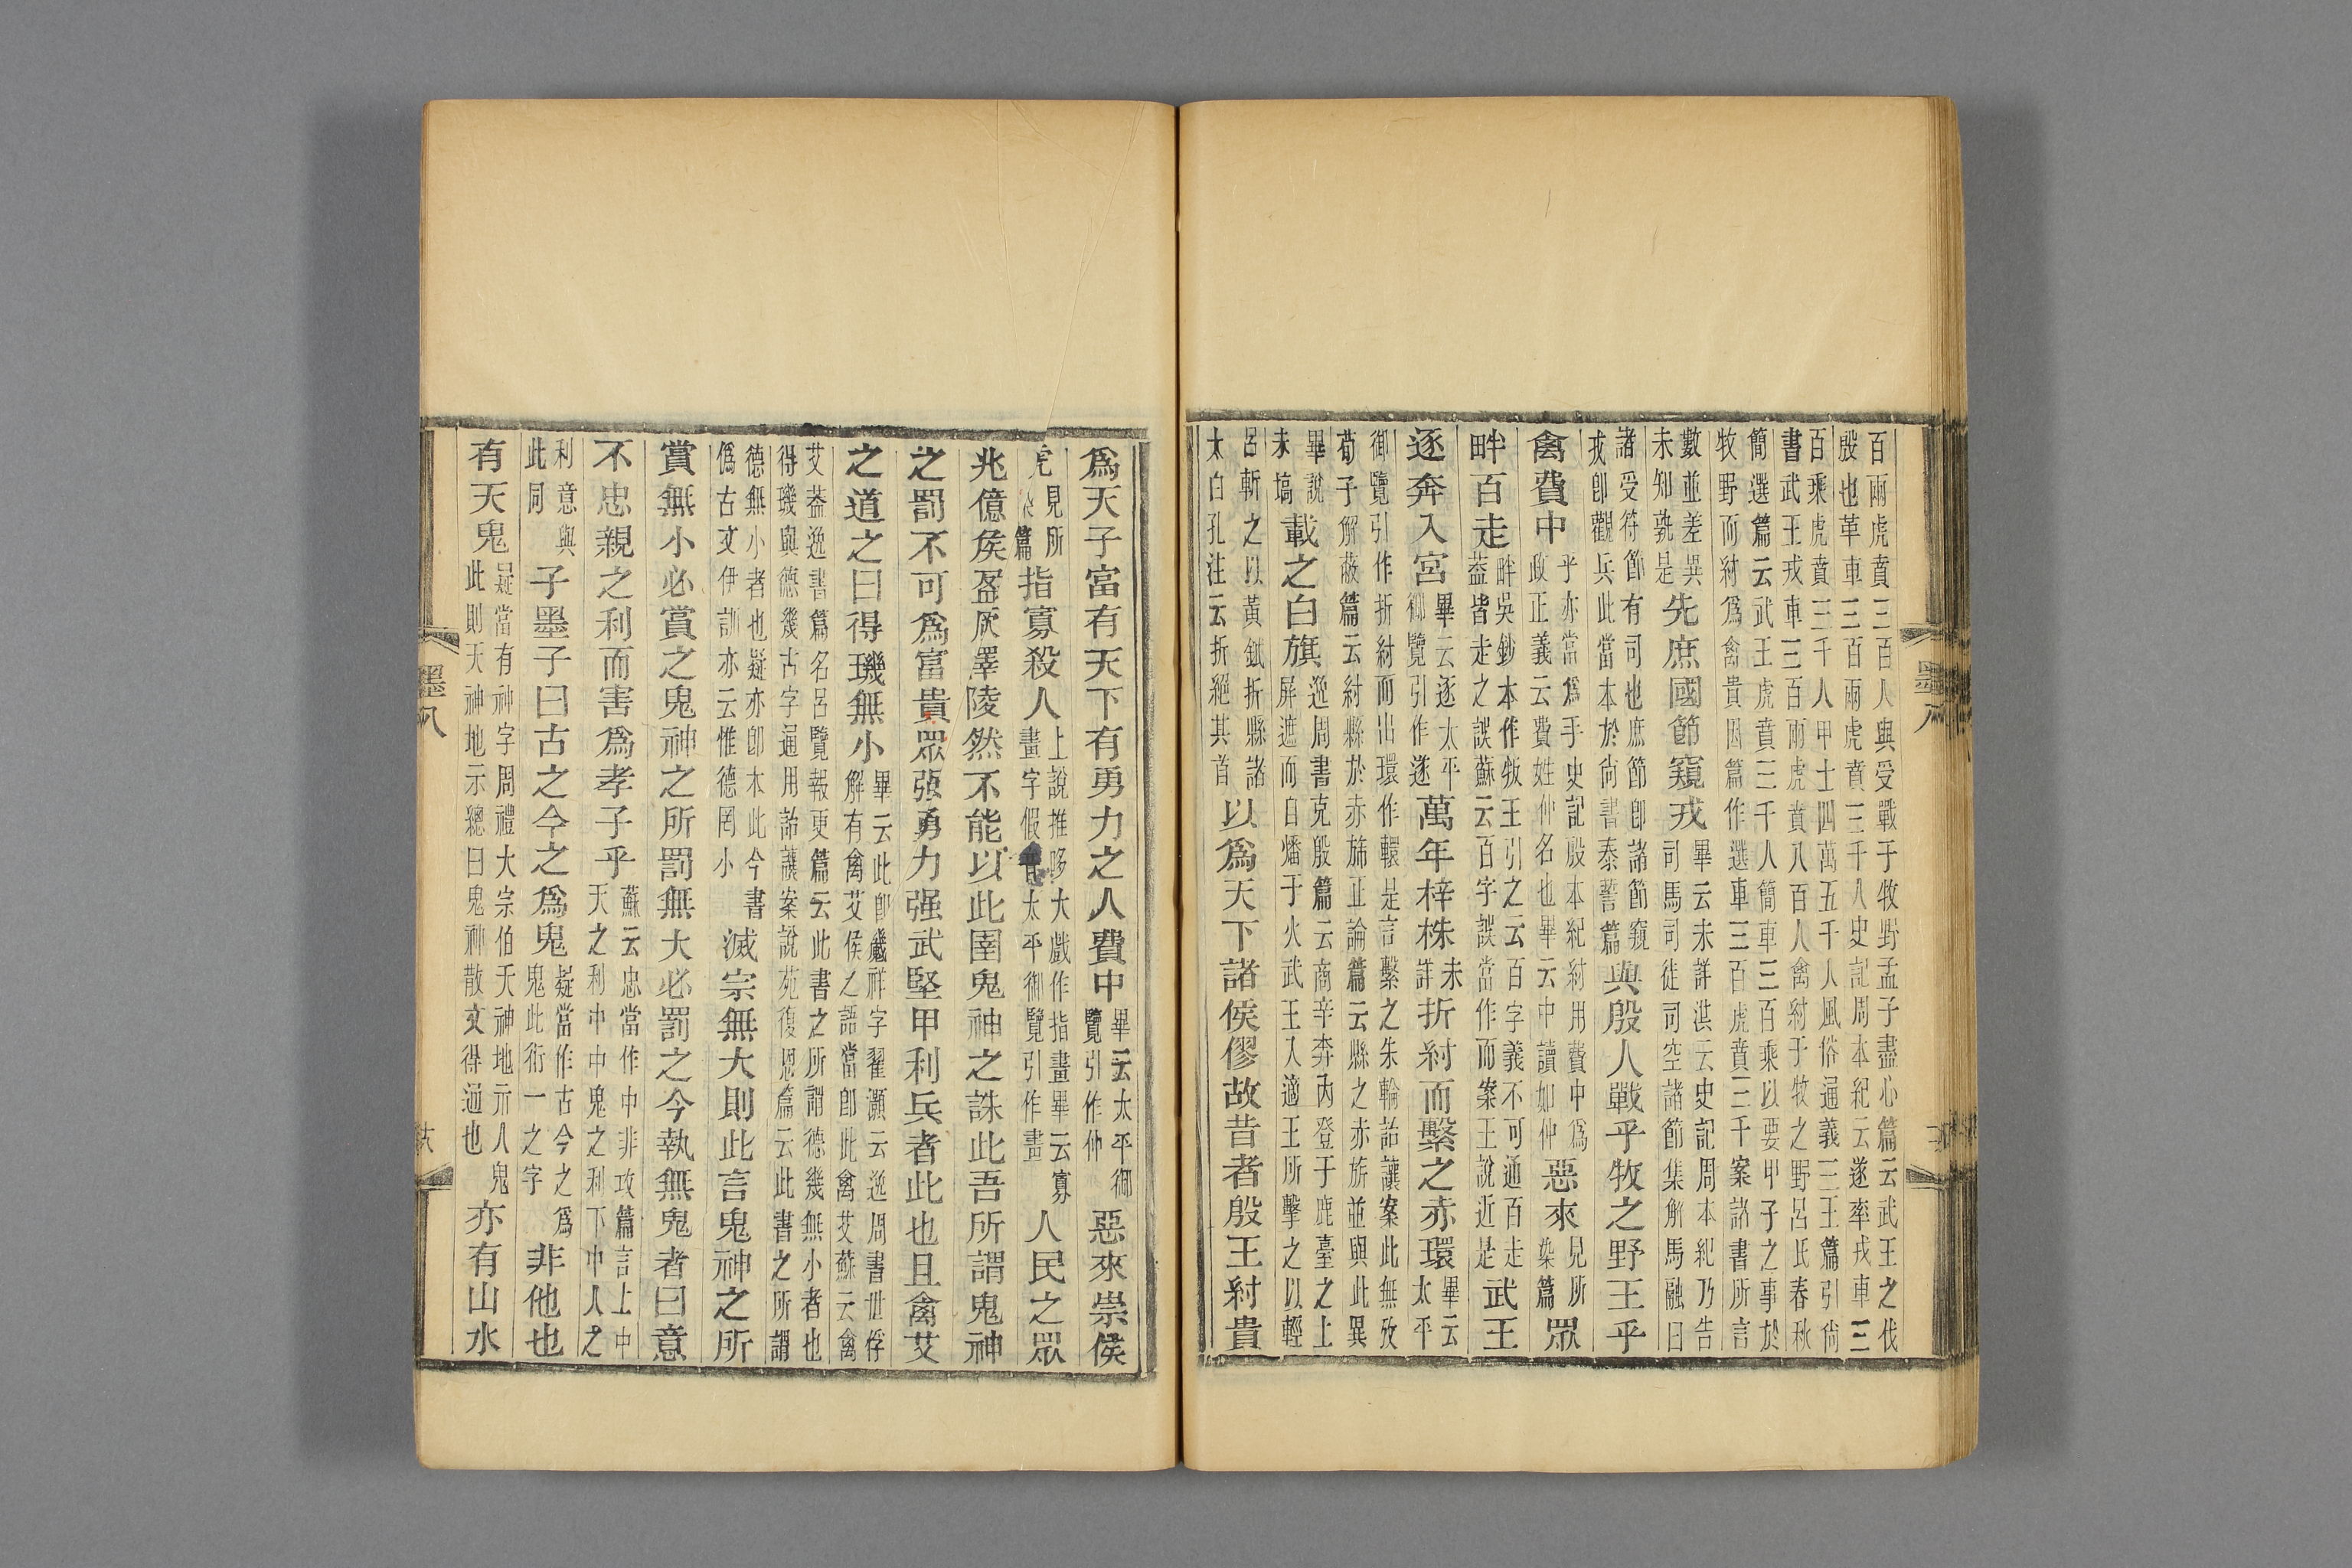 百兩虎賁三百人與受戰于牧野孟子盡心篇云武王之伐
殷也革車三百兩虎賁三千人史記周本紀云遂率戎車三
百乘虎賁三千人甲士四萬五千人風俗通義三王篇引尚
書武王戎車三百兩虎賁八百人禽紂于牧之野呂氏春秋
簡選篇云武王虎賁三千人簡車三百乘以要甲子之事於
牧野而紂爲禽貴因篇作選車三百虎賁三千案諸書所言
數並差異未知孰是先庶國節窺戎畢云未詳洪云史記周本紀乃告司馬司徒司空諸節集解馬融曰
諸受符節有司也庶節卽諸節窺戎卽觀兵此當本於尚書泰誓篇與殷人戰乎牧之野王乎
禽費中乎亦當爲手史記殷本紀紂用費中爲政正義云費姓仲名也畢云中讀如仲惡來見所染篇眾
畔百走畔吳鈔本作牧王引之云百字義不可通百走葢皆走之誤蘇云百字誤當作而案王說近是武王
逐奔入宮畢云逐太平御覽引作遂萬年梓株未詳折紂而繫之赤環畢云太平
御覽引作折紂而出環作轘是言繫之朱輪詒讓案此無攷
荀子解蔽篇云紂縣於赤旆正論篇云縣之赤旂並與此異
畢說未塙載之白旗逸周書克殷篇云商辛奔內登于鹿臺之上屏遮而自燔于火武王入適王所擊之以輕
呂斬之以黃鉞折縣諸太白孔注云折絕其首以爲天下諸侯僇故昔者殷王紂貴
墨八
爲天子富有天下有勇力之人費中畢云太平御覽引作仲惡來崇侯
虎見所篇指寡殺人上說推哆大戲作指畫畢云寡畫字假音太平御覽引作畫人民之眾
兆億矦盈厥澤陵然不能以此圉鬼神之誅此吾所謂鬼神
之罰不可爲富貴眾强勇力强武堅甲利兵者此也且禽艾
之道之曰得璣無小畢云此卽禨祥字翟灝云逸周書世俘解有禽艾侯之語當卽此禽艾蘇云禽
艾葢逸書篇名呂覽報更篇云此書之所謂德幾無小者也
得璣與德幾古字通用詒讓案說苑復恩篇云此書之所謂
德無小者也疑亦卽本此今書僞古文伊訓亦云惟德罔小滅宗無大則此言鬼神之所
賞無小必賞之鬼神之所罰無大必罰之今執無鬼者曰意
不忠親之利而害爲孝子乎蘇云忠當作中非攻篇言上中天之利中中鬼之利下中人之
利意與此同子墨子曰古之今之爲鬼疑當作古今之爲鬼此衍一之字非他也
有天鬼疑當有神字周禮大宗伯天神地示人鬼此則天神地示總曰鬼神散文得通也亦有山水
墨八
六